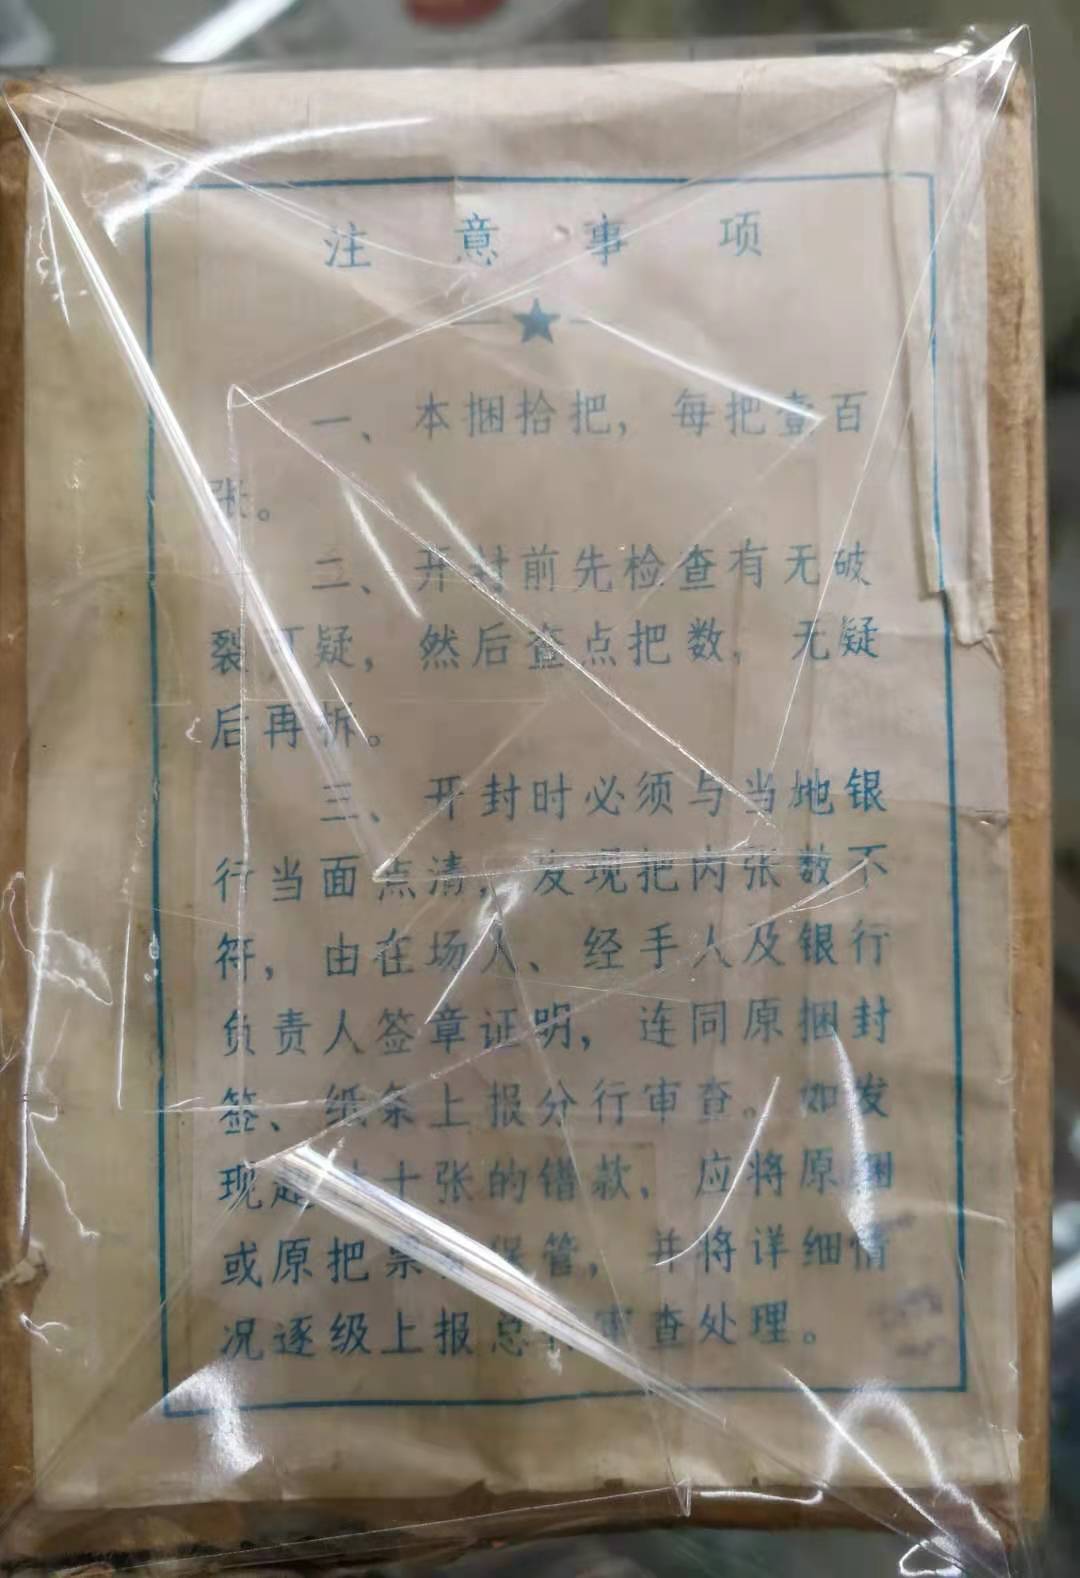 注意事项
一、本捆拾把，每把壹百
张。
二、开封前先检查有无破
裂可疑，然后查点把数，无疑
后再拆。
三、开封时必须与当地银
行当面点清，发现把内张数不
符，由在场人、经手人及银行
负责人签章证明，连同原捆封
签、纸条上报分行审查。如发
现超过十张的错款，应将原捆
或原把票保管，并将详细情
况逐级上报总行审查处理。